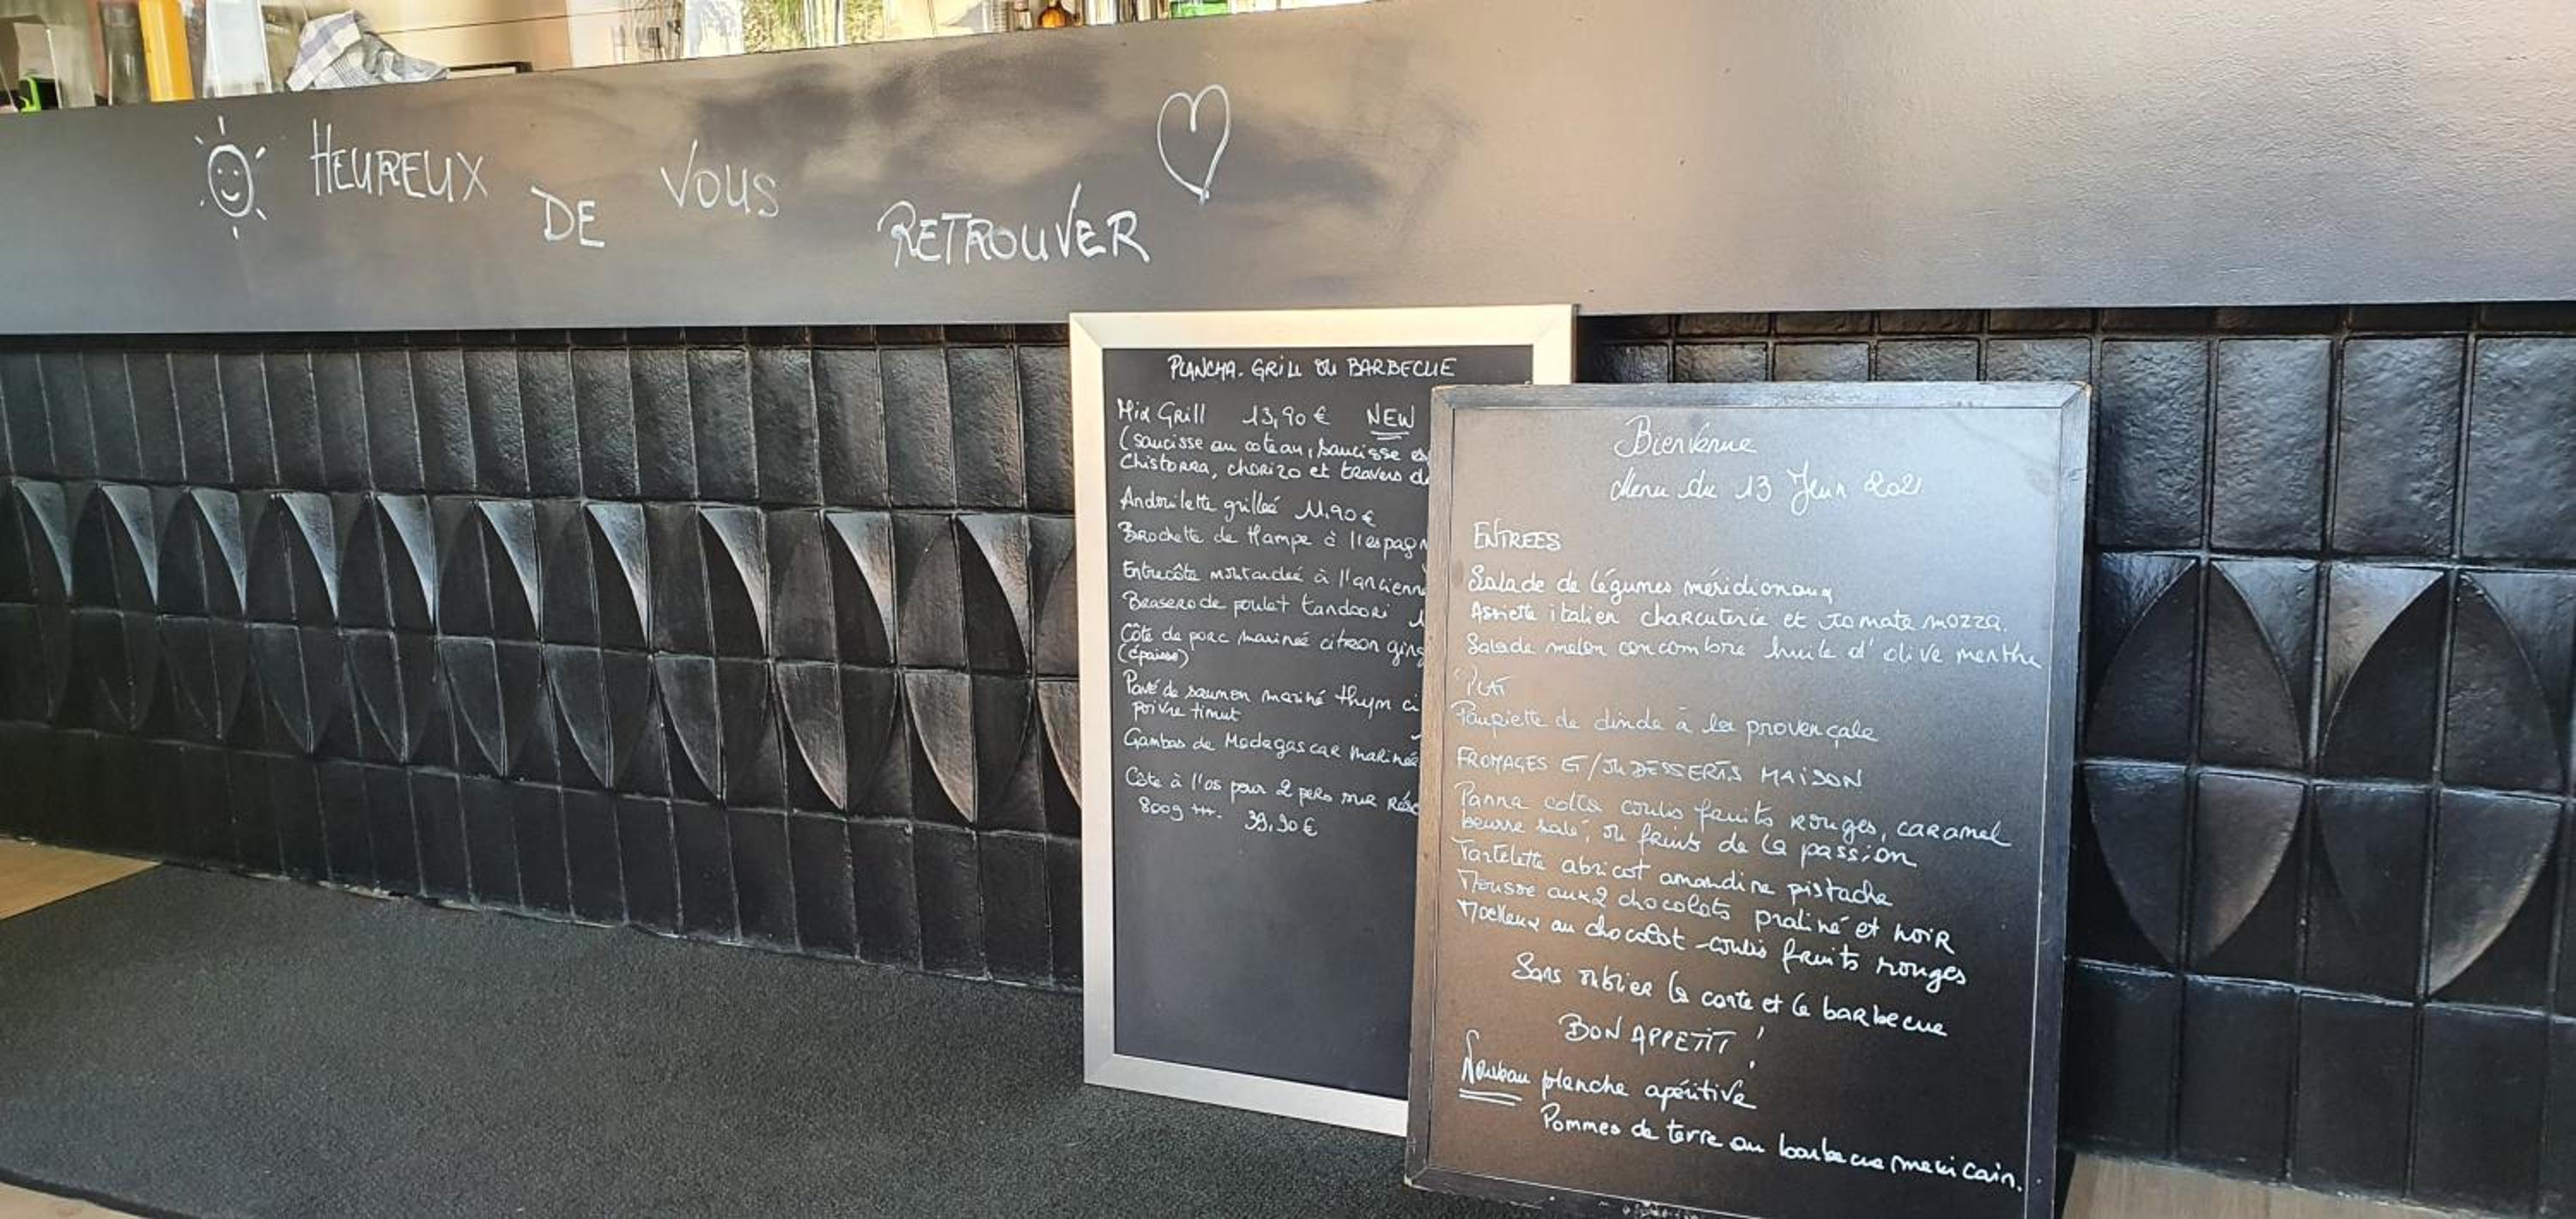 HEUREUX DE VOUS RETROUVER
PLANCHA. GRILL OU BARBECUE
Mix Grill 13,90 € NEW
(saucisse au coteau, saucisse es
Chistorra, chorizo et travers d
Andouilette grilleé 11.90 €
Brochette de Hampe à l'espagn
Entrecôte moutardeé à l'ancienn
Brasero de poulet tandoori
Côte de porc marineé citron ging
(épaisse)
Pavé de saumon mariné thym ci
poivre timut
Gambas de Madagascar marineé
Côte à l'os pour 2 pers sur rés
800g +++. 39,90 €
Bienvenue
Menu du 13 Juin 2021
ENTREES
Salade de légumes méridionaux
Assiette italien charcuterie et tomate mozza.
Salade melon concombre huile d'olive menthe
PLAT
Paupiette de dinde à la provençale
FROMAGES ET/OU DESSERTS MAISON
Panna cotta coulis fruits rouges, caramel
beurre salé, ou fruits de la passion
Tartelette abricot amandine pistache
Mousse aux 2 chocolats praliné et noir
Moelleux au chocolat - coulis fruits rouges
Sans oublier la carte et le barbecue
BON APPETIT !
Nouveau planche apéritive
Pommes de terre au barbecue mexicain.